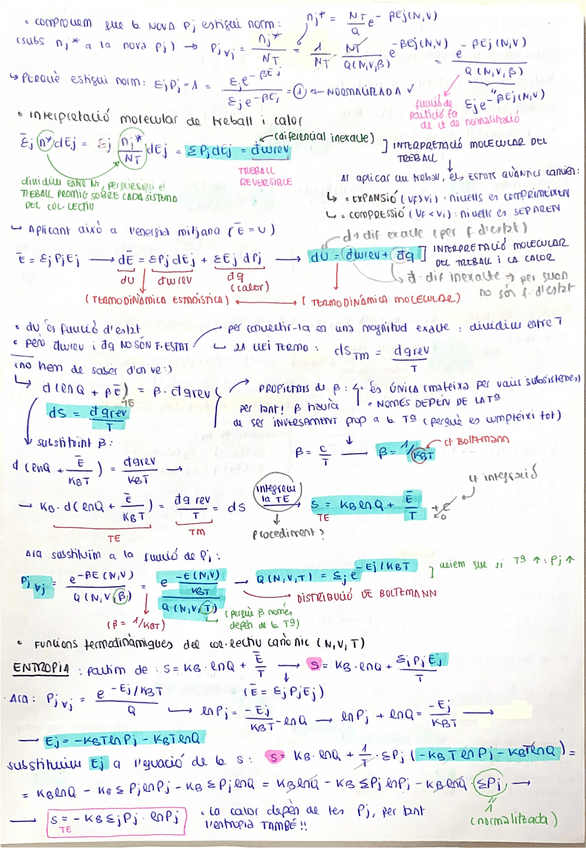 • comprovem que la nova Pj estigui norm:
(subs nj* a la nova Pj) → Pj ∀j = nj*/NT = 1/NT · NT/Q(N,V,β) e^-βEj(N,V) = e^-βEj(N,V) / Q(N,V,β)
nj* = NT/Q e^-βEj(N,V)
↳ Perquè estigui norm: ΣjPj = 1 = Σj e^-βEj / Σj e^-βEj = 1 ← NORMALITZADA ✓
funció de partició fa de ct de normalització
Σj e^-βEj(N,V)
• Interpretació molecular de treball i calor
Σj nj* dEj = Σj nj*/NT dEj = ΣPjdEj = đwrev
(diferencial inexacte)
TREBALL REVERSIBLE
] INTERPRETACIÓ MOLECULAR DEL TREBALL
dividim entre NT, perquè sigui el
TREBALL PROMIG SOBRE CADA SISTEMA
DEL COL·LECTIU
Al aplicar au treball, els ESTATS QUÀNTICS canvien:
↳ • EXPANSIÓ (Vf>Vi): nivells es COMPRIMEIXEN
↳ • COMPRESSIÓ (Vf<Vi): nivells es SEPAREN
↳ Aplicant això a l'energia mitjana (Ē = U)
d → dif exacte (per f. d'estat)
Ē = Σj PjEj → dĒ = ΣPj dEj + ΣEj dPj → dU = đwrev + đq
dU đwrev đq (calor)
] INTERPRETACIÓ MOLECULAR DEL TREBALL I LA CALOR
đ: dif inexacte → per q no són f. d'estat
(TERMODINÀMICA ESTADÍSTICA) (TERMODINÀMICA MOLECULAR)
• dU és funció d'estat
• però đwrev i đq NO SÓN F. ESTAT
per convertir-la en una magnitud exacte: dividim entre T
↳ 2a llei termo: dSTM = đqrev/T
(no hem de saber d'on ve:)
↳ d(lnQ + βĒ) = β · đqrev
TE
dS = đqrev/T
PROPIETATS DE β: • és única (mateixa per varis subsistemes)
• NOMÉS DEPÈN DE LA Tª
per tant: β haurà de ser inversament prop a la Tª (perquè es compleixi tot)
↓ substituint β:
β = c/T → β = 1/KBT
ct Boltzmann
d(lnQ + Ē/KBT) = đqrev/KBT →
→ KB · d(lnQ + Ē/KBT) = đqrev/T = dS
TE TM
integrem la TE
S = KB lnQ + Ē/T + c
TE
=0
ct integració
procediment?
Ara substituïm a la funció de Pj:
Pj ∀j = e^-βE(N,V) / Q(N,V,β) = e^-E(N,V)/KBT / Q(N,V,T) → Q(N,V,T) = Σj e^-Ej/KBT
] veiem que si Tª ↑: Pj ↑
(β = 1/KBT)
(perquè β només depèn de la Tª)
DISTRIBUCIÓ DE BOLTZMANN
• Funcions termodinàmiques del col·lectiu canònic (N,V,T)
ENTROPIA: partim de: S = KB · lnQ + Ē/T → S = KB · lnQ + ΣjPjEj/T
(Ē = ΣjPjEj)
• Ara: Pj ∀j = e^-Ej/KBT / Q → lnPj = -Ej/KBT - lnQ → lnPj + lnQ = -Ej/KBT →
→ Ej = -KBTlnPj - KBTlnQ
substituïm Ej a l'equació de la S: S = KB · lnQ + 1/T · ΣPj (-KBTlnPj - KBTlnQ) =
= KBlnQ - KB ΣPjlnPj - KB ΣPjlnQ = KBlnQ - KB ΣPjlnPj - KBlnQ · ΣPj →
1
(normalitzada)
→ S = -KB ΣjPj · lnPj
TE
• La calor depèn de les Pj, per tant
l'entropia TAMBÉ!!